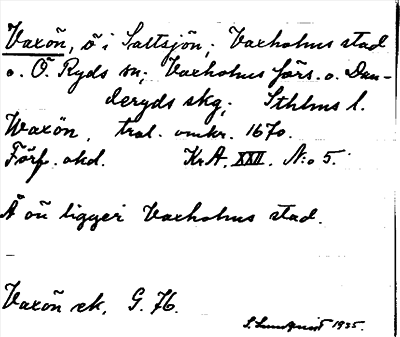 Vaxön, ö i Saltsjön; Vaxholms stad
o. Ö. Ryds sn; Vaxholms förs. o. Dan-
deryds skg; Sthlms l.
Waxön, tral. omkr. 1670.
Förf. okd. Kr.A. XXII. N:o 5.
Å ön ligger Vaxholms stad.
Vaxön ek, G. 76.
S. Lundqvist 1935.